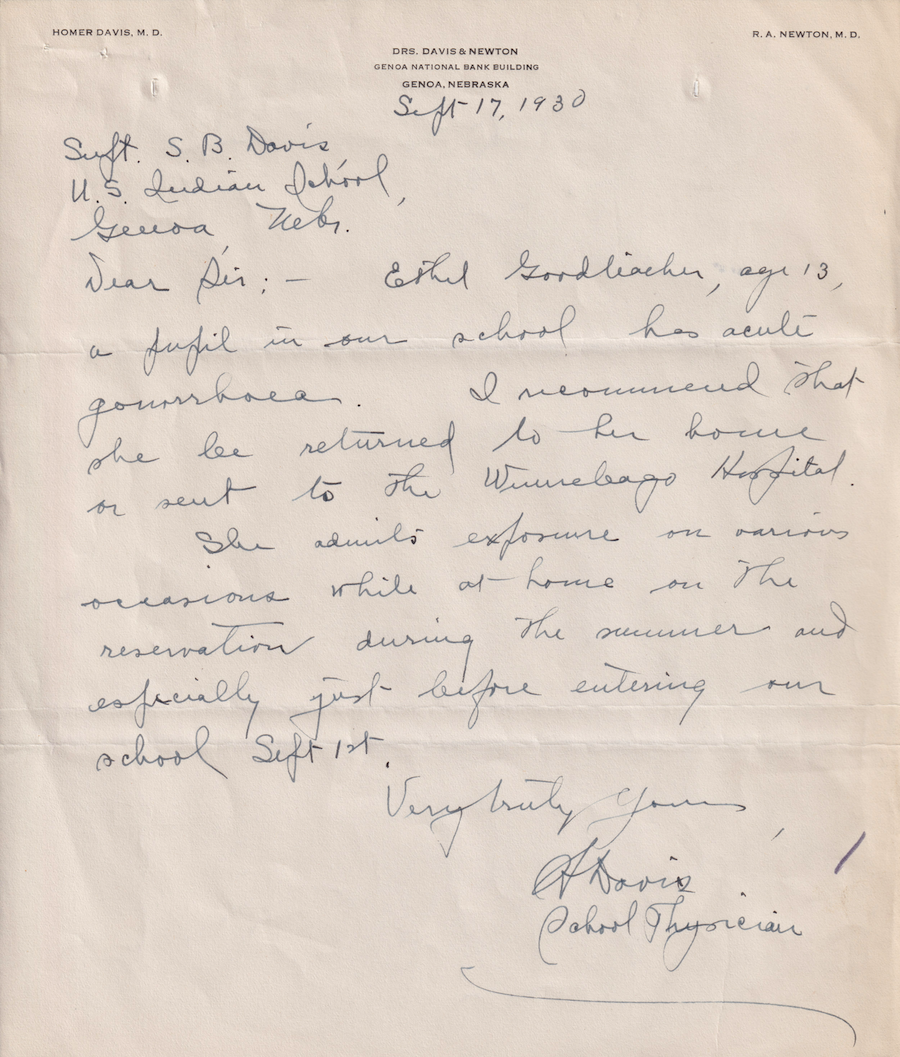 HOMER DAVIS, M. D.
R. A. NEWTON, M. D.
DRS. DAVIS & NEWTON
GENOA NATIONAL BANK BUILDING
GENOA, NEBRASKA
Sept 17, 1930
Supt. S. B. Davis
U. S. Indian School,
Genoa, Nebr.
Dear Sir; — Ethel Goodteacher, age 13,
a pupil in our school has acute
gonorrhoea. I recommend that
she be returned to her home
or sent to the Winnebago Hospital.
She admits exposure on various
occasions while at home on the
reservation during the summer and
especially just before entering our
school Sept 1st.
Very truly yours,
H Davis
School Physician